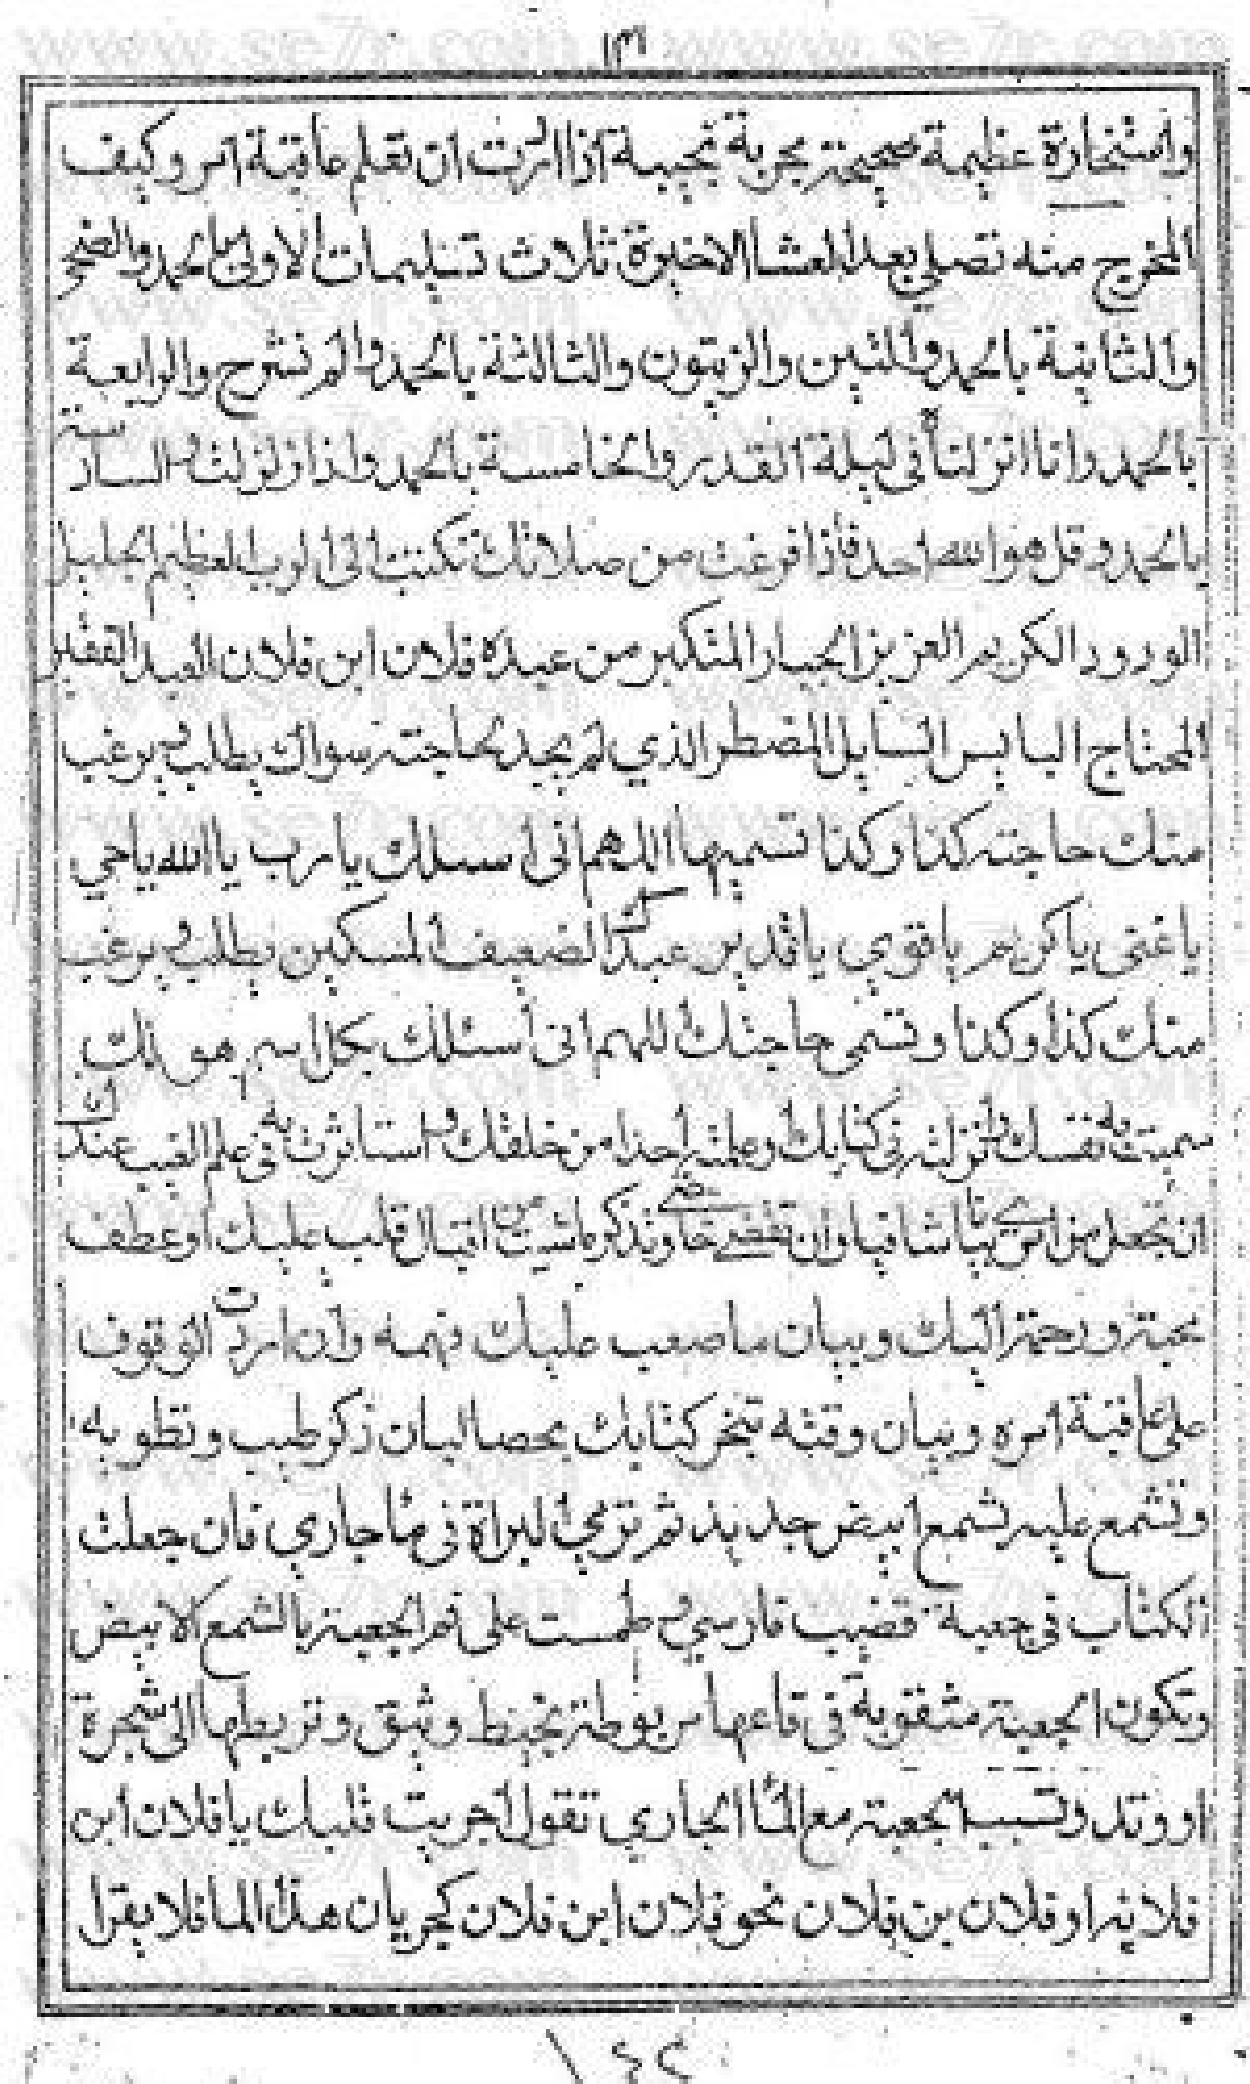 ١٣١
واستخارة عظيمة صحيحة مجربة عجيبة اذا اردت ان تعلم عاقبة امر وكيف
المخرج منه تصلي بعد العشا الاخيرة ثلاث تسليمات الاولى بالحمد والضحى
والثانية بالحمد والتين والزيتون والثالثة بالحمد والم نشرح والرابعة
بالحمد وانا انزلناه في ليلة القدر والخامسة بالحمد واذا زلزلت والسادسة
بالحمد وقل هو الله احد فاذا فرغت من صلاتك تكتب الى الرب العظيم الجليل
الودود الكريم العزيز الجبار المتكبر من عبده فلان ابن فلان العبد الفقير
المحتاج البايس السايل المضطر الذي لم يجد لحاجته سواك يطلب ويرغب
منك حاجته كذا وكذا تسميها اللهم اني اسئلك يارب يا الله ياحي
ياغني ياكريم ياقوي ياقدير عبدك الضعيف المسكين يطلب ويرغب
منك كذا وكذا وتسمي حاجتك اللهم اني أسئلك بكل اسم هو لك
سميت به نفسك وانزلته في كتابك او علمته احدا من خلقك او استاثرت به في علم الغيب عندك
ان تجعل من امري بيانا شافيا وان تقضي وتذكر ماشيت من اقبال قلب عليك او عطف
محبة ورحمة اليك وبيان ما صعب عليك فهمه وان اردت الوقوف
على عاقبة امره وبيان وقته تبخر كتابك بحصا لبان ذكر طيب وتطويه
وتشمع عليه بشمع ابيض جديد ثم ترمي البراة في ما جاري فان جعلت
الكتاب في جعبة قضيب فارسي وطمست على فم الجعبة بالشمع الابيض
وتكون الجعبة مثقوبة في قاعها مربوطة بخيط وثيق وتربطها الى شجرة
او وتد وتسيب الجعبة مع الما الجاري تقول اجريت قلبك يافلان ابن
فلانه او فلان بن فلان نحو فلان ابن فلان كجريان هذا الما فلا يقرا
١٤٢
www.se7r.com www.se7r.com